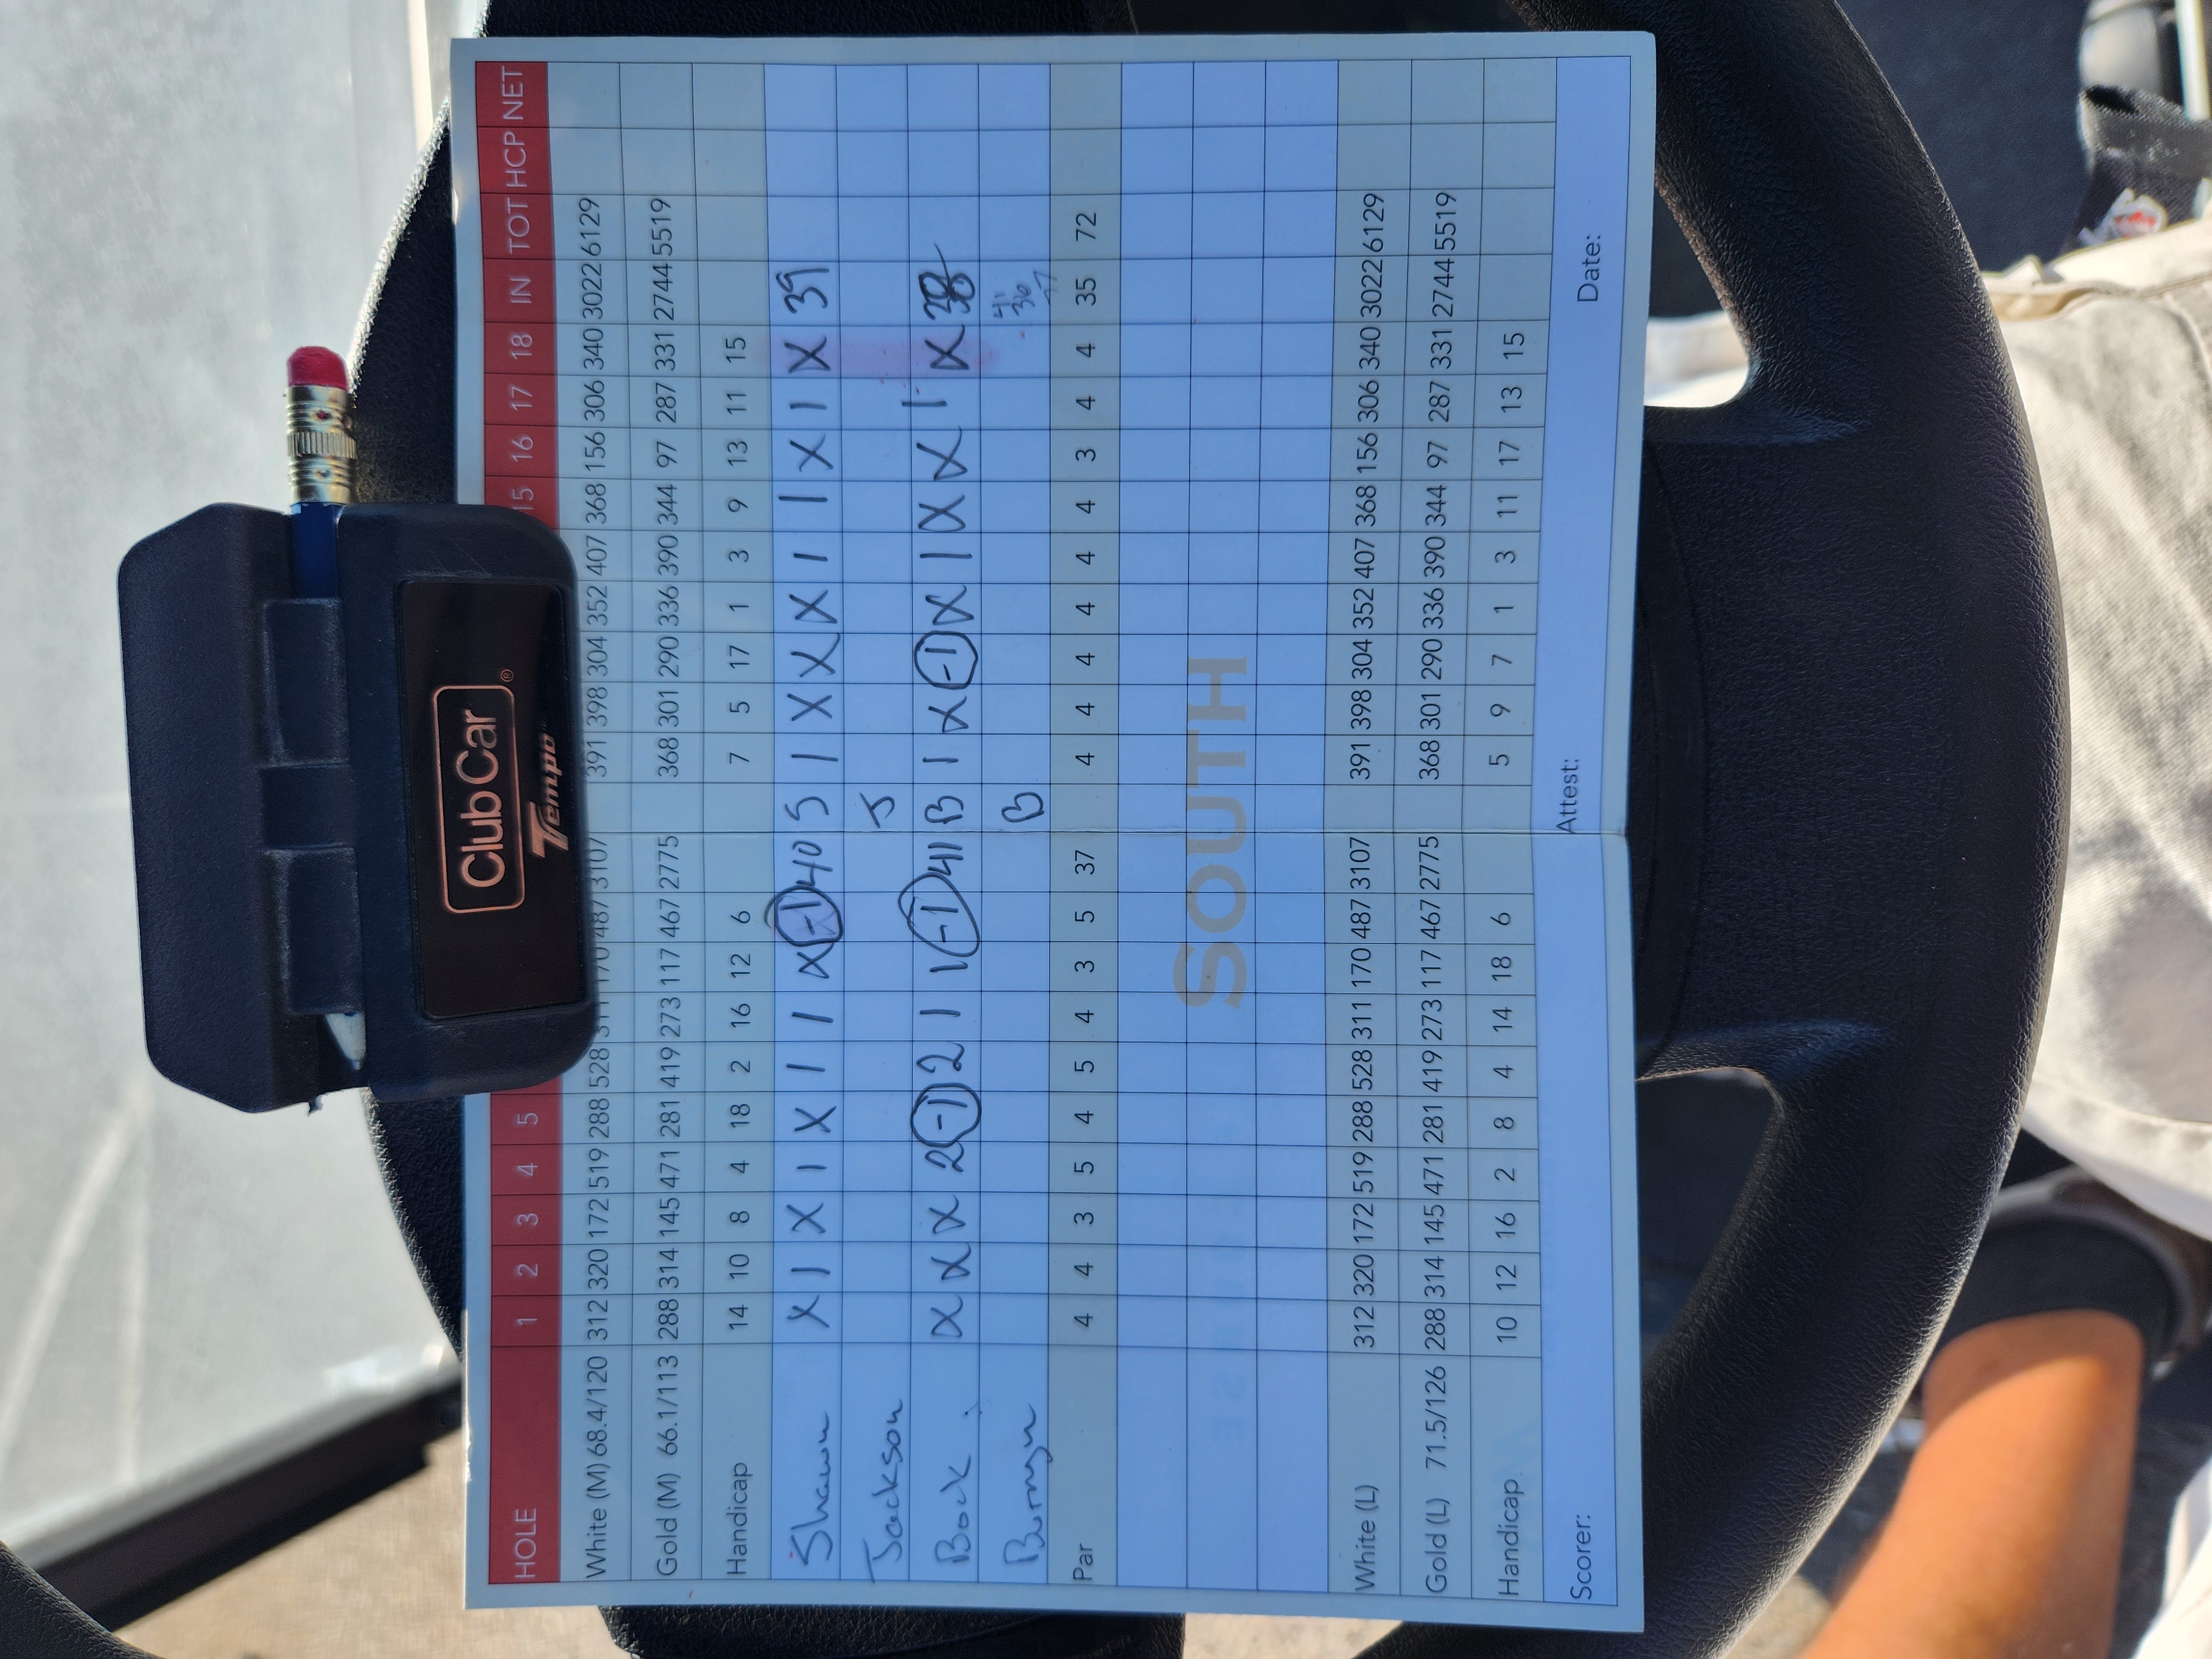 Club Car ®
Tempo
HOLE 1 2 3 4 5 15 16 17 18 IN TOT HCP NET
White (M) 68.4/120 312 320 172 519 288 528 311 170 487 3107 391 398 304 352 407 368 156 306 340 3022 6129
Gold (M) 66.1/113 288 314 145 471 281 419 273 117 467 2775 368 301 290 336 390 344 97 287 331 2744 5519
Handicap 14 10 8 4 18 2 16 12 6 7 5 17 1 3 9 13 11 15
Shawn X 1 X 1 X 1 1 X -1 40 S 1 X X X 1 1 X 1 X 39
Jackson J
Bock X X X 2 -1 2 1 1 -1 41 B 1 X -1 X 1 X X 1 X
B 41
36
Par 4 4 3 5 4 5 4 3 5 37 4 4 4 4 4 4 3 4 4 35 72
SOUTH
White (L) 312 320 172 519 288 528 311 170 487 3107 391 398 304 352 407 368 156 306 340 3022 6129
Gold (L) 71.5/126 288 314 145 471 281 419 273 117 467 2775 368 301 290 336 390 344 97 287 331 2744 5519
Handicap 10 12 16 2 8 4 14 18 6 5 9 7 1 3 11 17 13 15
Scorer: Attest: Date: